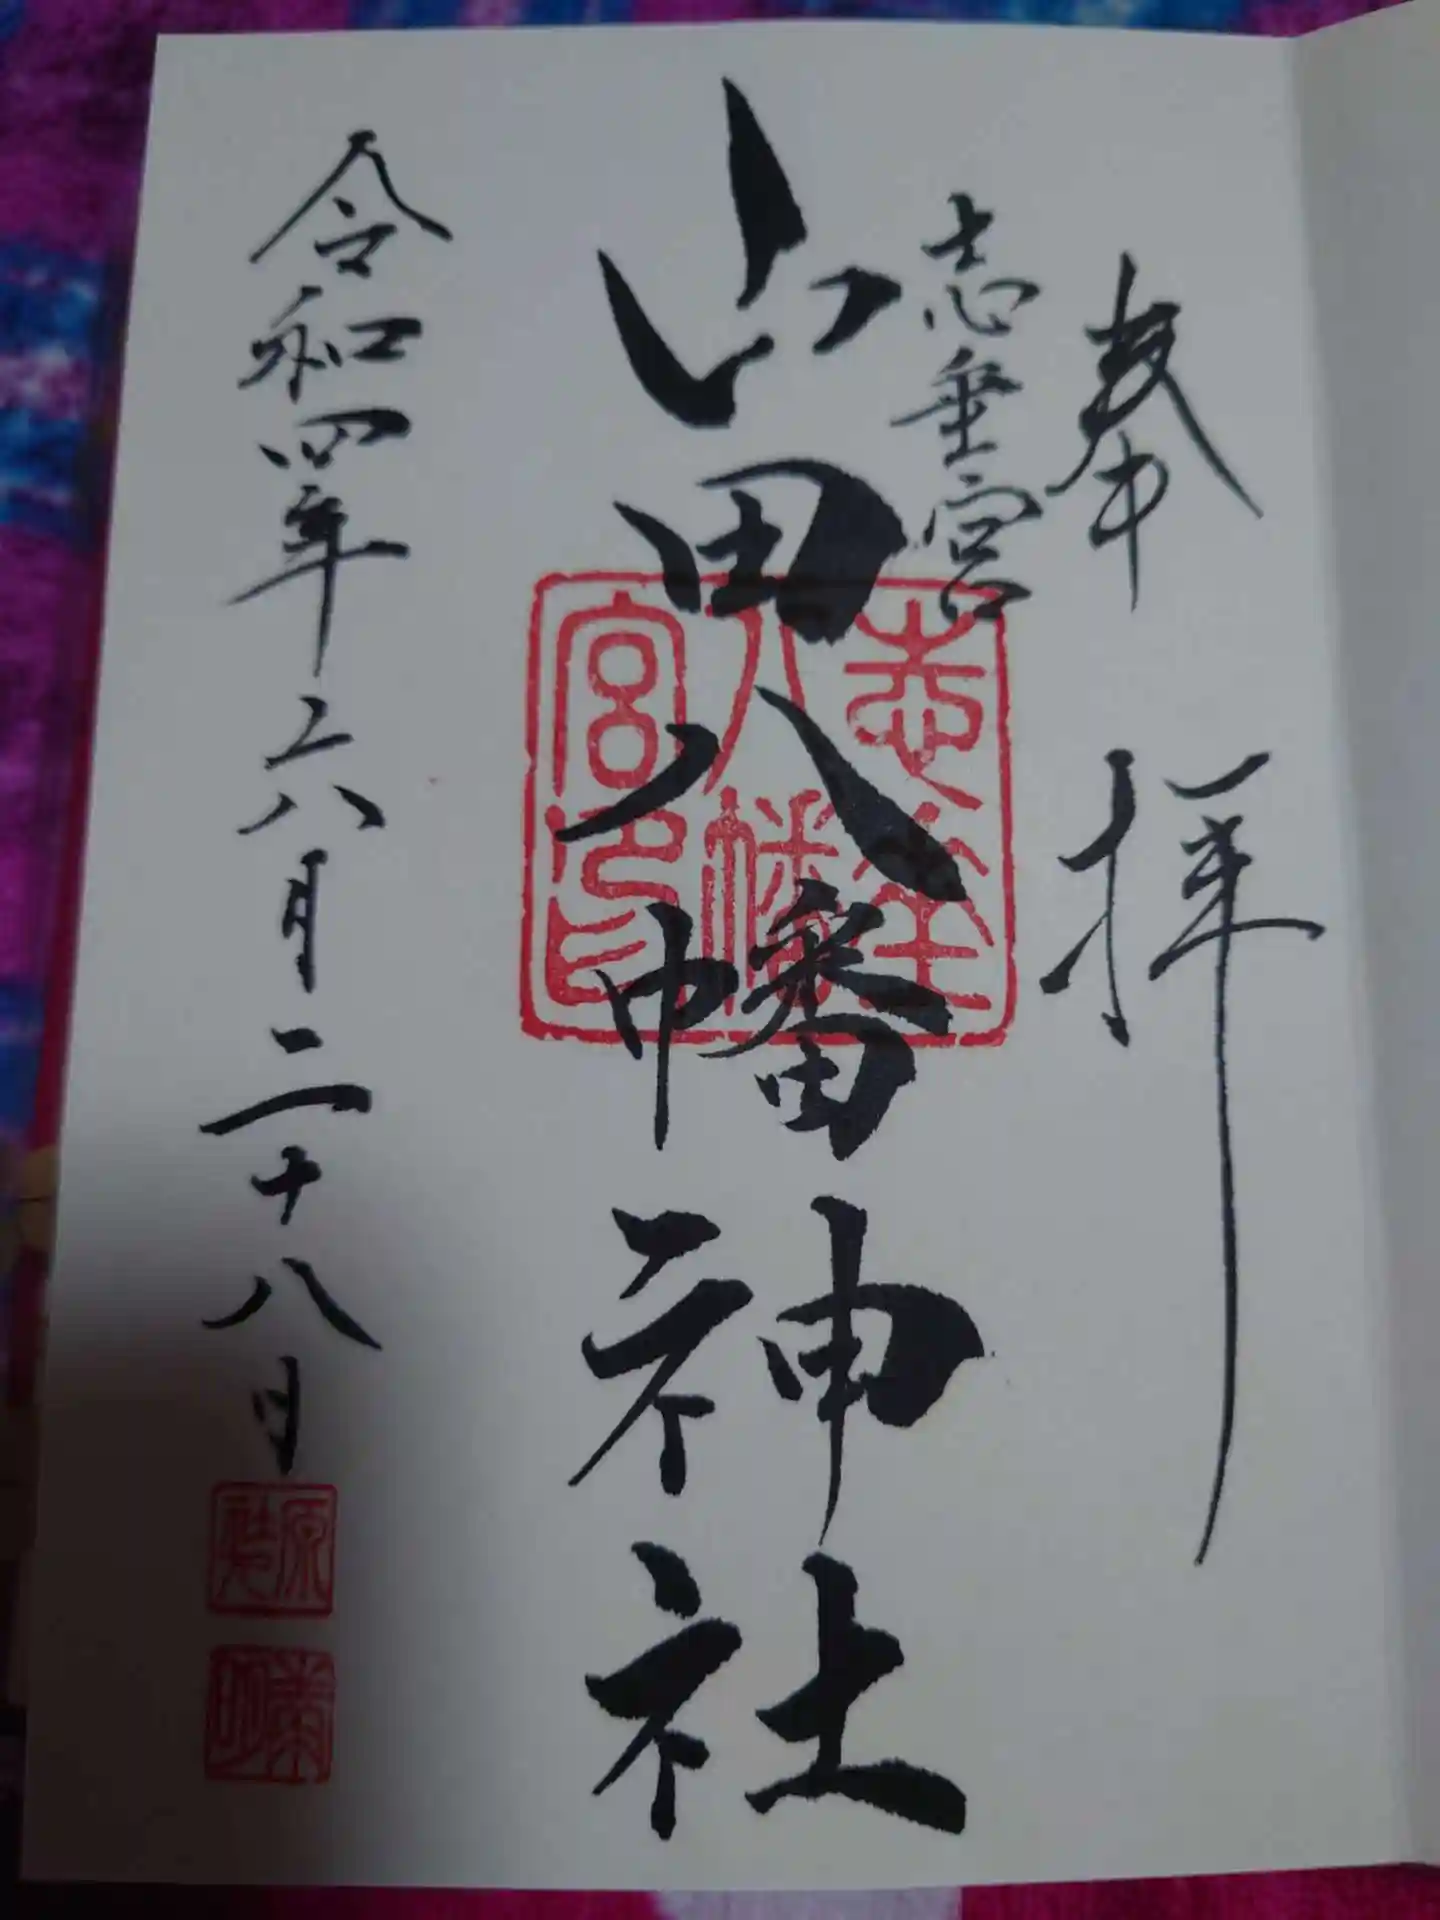 奉拝
志垂宮
山田八幡神社
志垂八幡宮印
令和四年六月二十八日